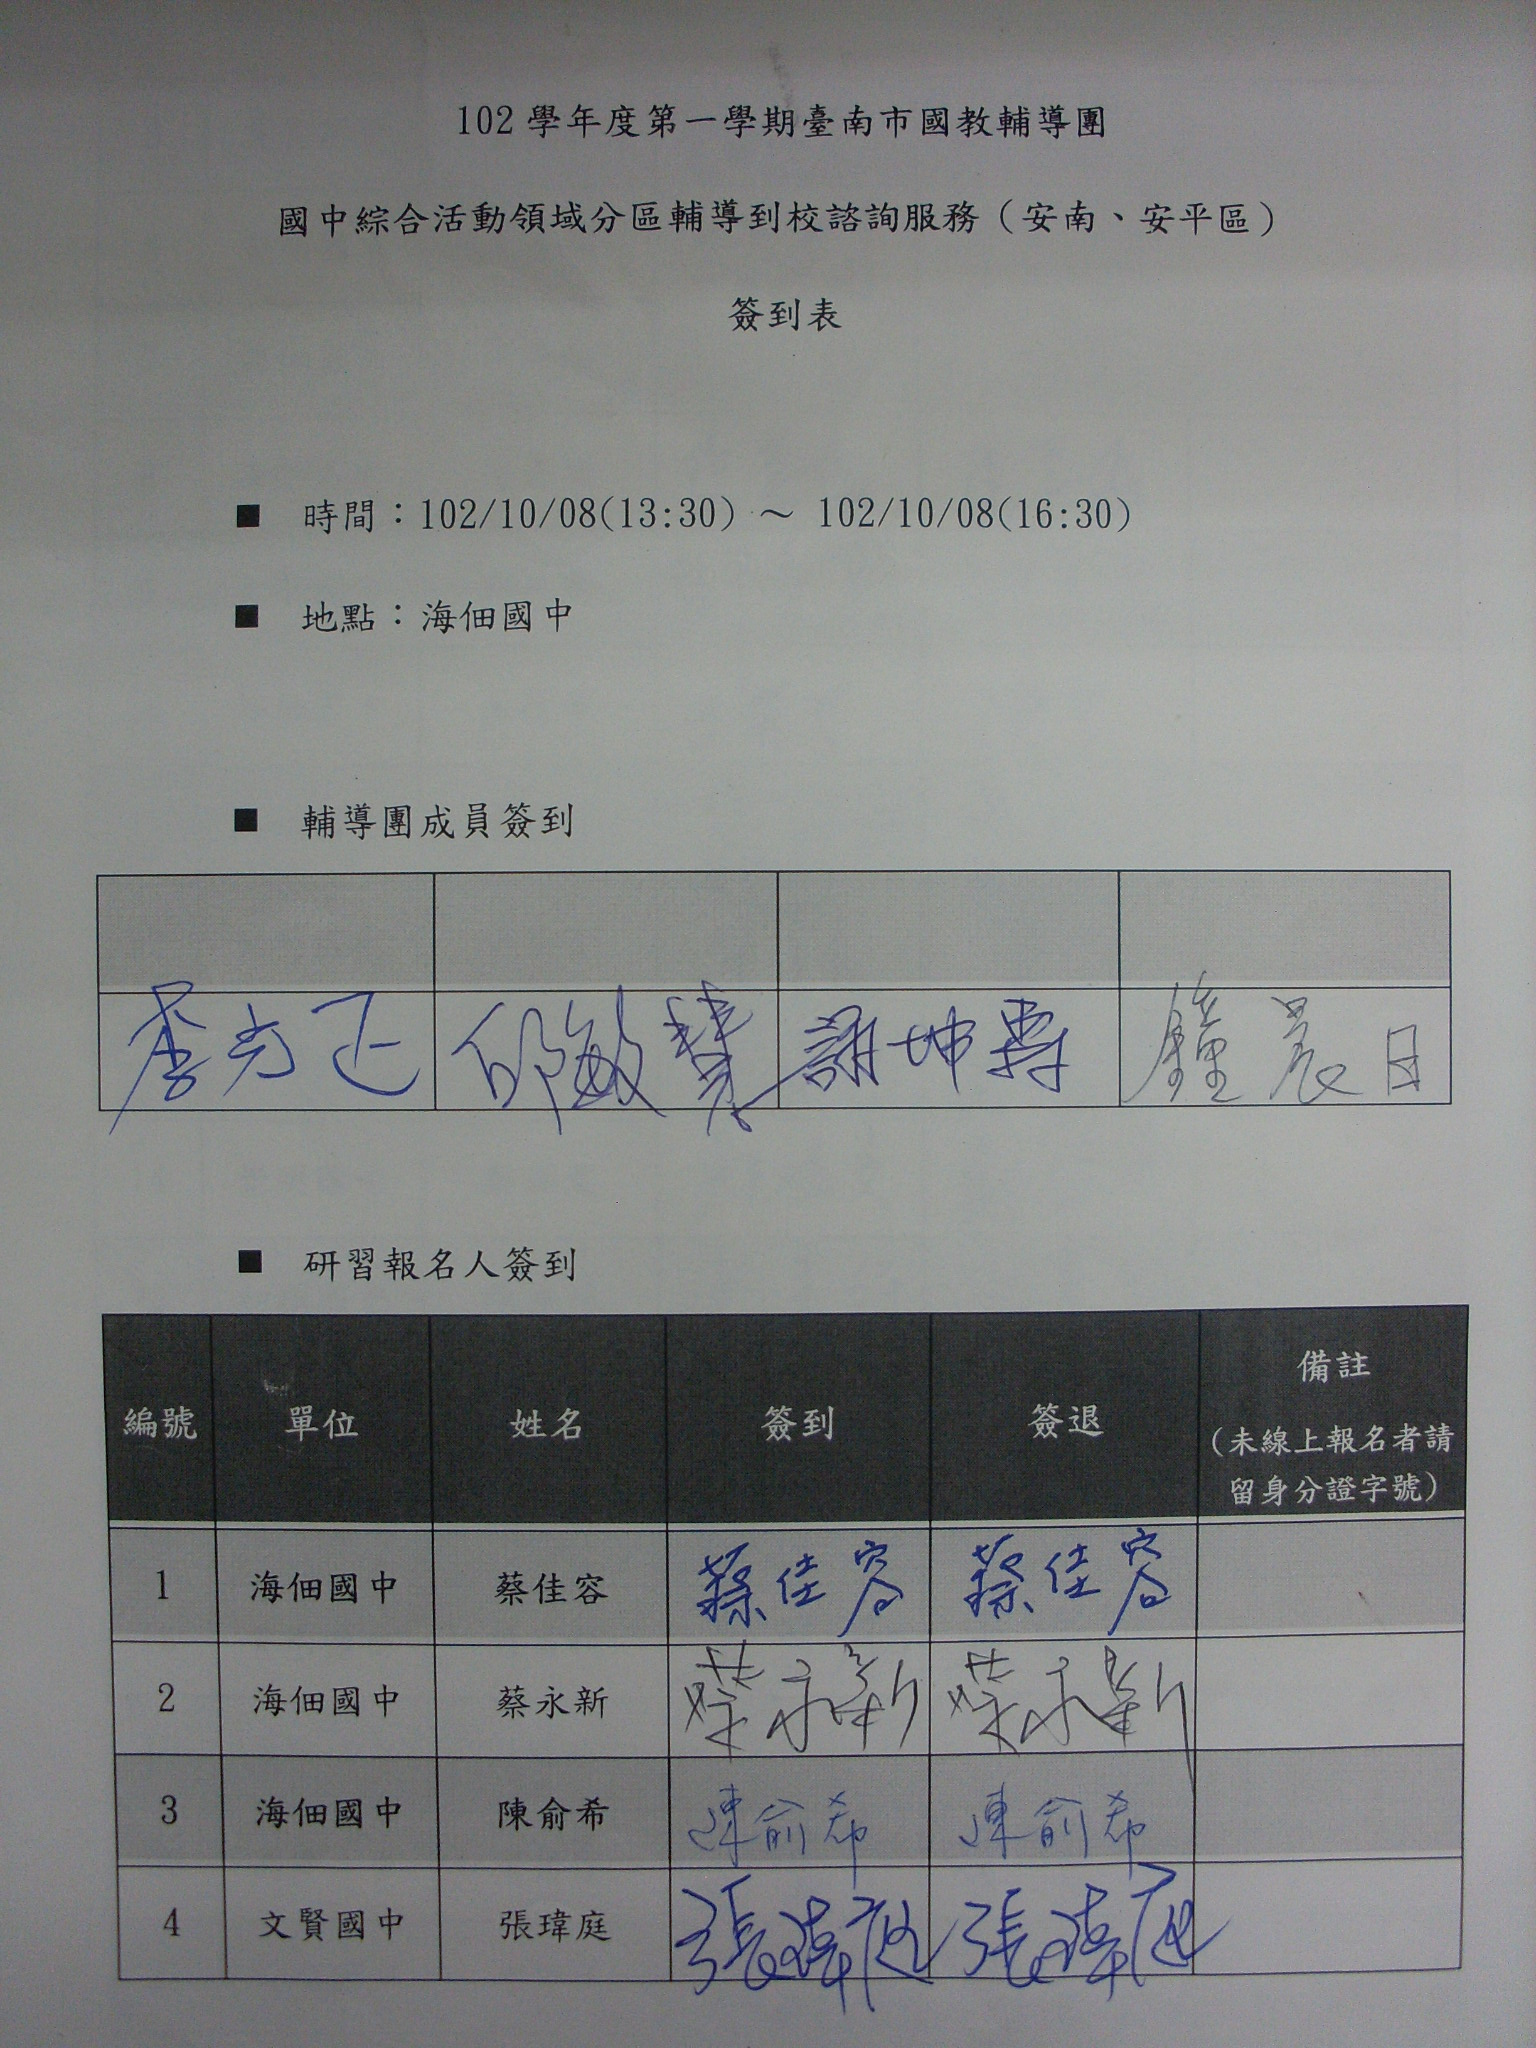 102學年度第一學期臺南市國教輔導團
國中綜合活動領域分區輔導到校諮詢服務（安南、安平區）
簽到表
■ 時間：102/10/08(13:30) ～ 102/10/08(16:30)
■ 地點：海佃國中
■ 輔導團成員簽到
邱敏慧 謝坤霖 鐘晨日
■ 研習報名人簽到
編號 單位 姓名 簽到 簽退 備註
（未線上報名者請
留身分證字號）
1 海佃國中 蔡佳容 蔡佳容 蔡佳容
2 海佃國中 蔡永新 蔡永新 蔡永新
3 海佃國中 陳俞希 陳俞希 陳俞希
4 文賢國中 張瑋庭 張瑋庭 張瑋庭